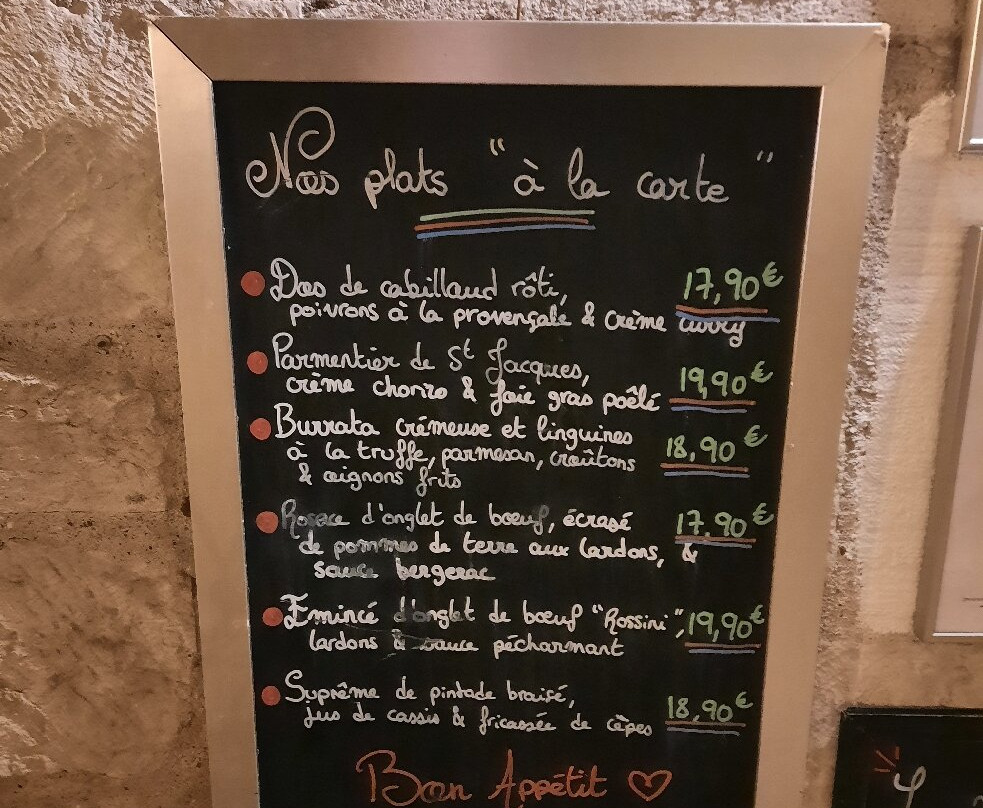 Nos plats "à la carte"
Dos de cabillaud rôti, 17,90€
poivrons à la provençale & crème curry
Parmentier de St Jacques,
crème chorizo & foie gras poêlé 19,90€
Burrata crémeuse et linguines
à la truffe, parmesan, croûtons 18,90€
& oignons frits
Rosace d'onglet de bœuf, écrasé 17,90€
de pommes de terre aux lardons, &
sauce bergerac
Emincé d'onglet de bœuf "Rossini", 19,90€
lardons & sauce pécharmant
Suprême de pintade braisé,
jus de cassis & fricassée de cèpes 18,90€
Bon Appétit